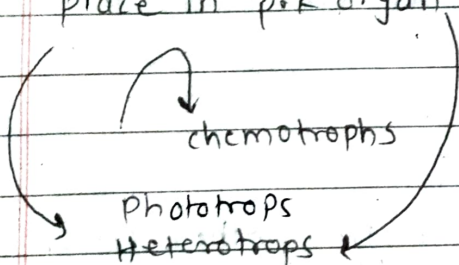 place in
chemotrophs
Phototrops
Heterotrops